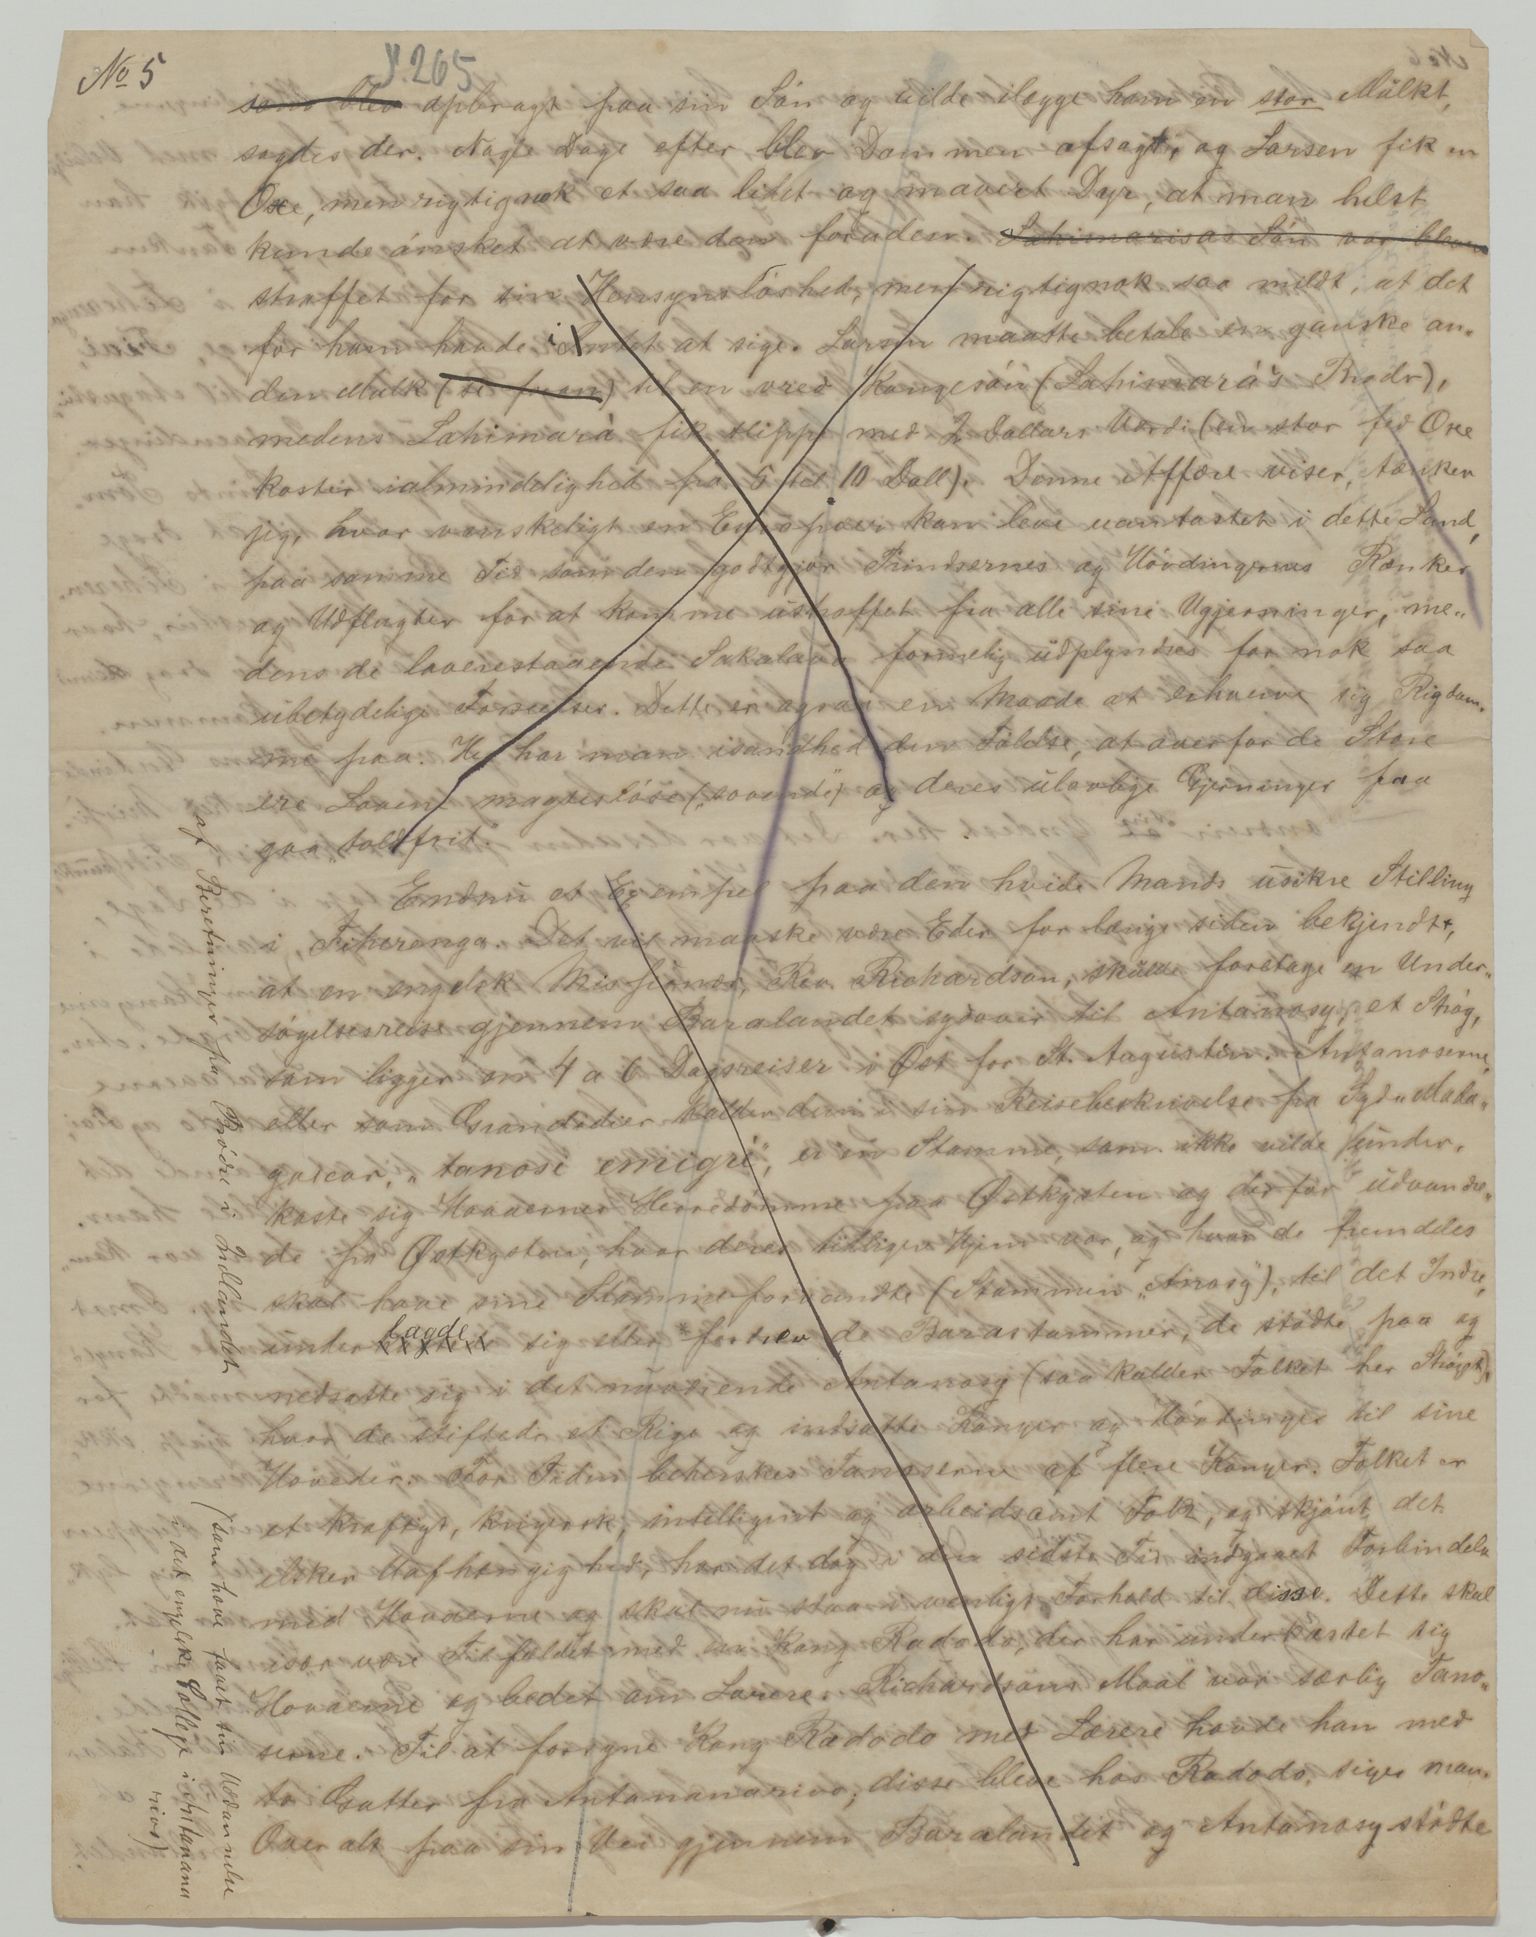 No 5
265
som blev opbragt paa sin Sön og vilde ilægge ham en stor Mülkt,
sagdes der. Nogle Dage efter blev Dommen afsagt, og Larsen fik en
Oxe, men rigtignok et saa lidet og mavert Dyr, at man helst
kunde ønsket at være den foruden. Lahimarisas Sön var bleven
straffet for sin Hensynslöshed, men rigtignok saa mildt, at det
for ham havde intet at sige. Larsen maatte betale en ganske an-
den Mulkt til en vred Kongesön (Lahimará's Broder),
medens Lahimará fik slippe med 2 Dollars Værdi (en stor fed Oxe
koster ialmindelighed fra 5 til 10 Doll). Denne Affære viser, tænker
jeg, hvor vanskeligt en Europæer kan leve uantastet i dette Land,
paa samme Tid som den godtgjør Prindsernes og Hövdingernes Rænker
og Udflugter for at komme ustraffet fra alle sine Ugjerninger, me-
dens de laverestaaende Sakalaver formelig üdplyndres for nok saa
übetydelige Forseelser. Dette er ogsaa en Maade at erhverve sig Rigdom-
me paa. Her har man isandhed den Fölelse, at overfor de Store
ere Loven magteslöse („sovende") og deres ulovlige Gjerninger faa
gaa toldfrit.
Endnu et Exempel paa den hvide Mands usikre Stilling
i Fiherenga. Det vil maaske være Eder for længe siden bekjendt,
at en engelsk Missionær, Rev. Richardson, skulde foretage en Under-
sögelsesreise gjennem Baralandet sydover til Antanosy, et Strög,
som ligger en 4 a 6 Dagsreiser i Øst for St. Augustin. Antanoserne,
eller som Grandidier kalder dem i sin Reisebeskrivelse fra Syd-Mada-
gascar, „tanosi emigré", er en Stamme, som ikke vilde under-
kaste sig Hovaernes Herredömme paa Østkysten og derfor üdvandre-
de fra Østkysten, hvor deres tidligere Hjem var, og hvor de fremdeles
skal have sine Stammeforvandte (Stammen „Anosy"), til det Indre,
underlagde sig eller fordrev de Barastammer, de stødte paa og
nedsatte sig i det nuværende Antanosy (saa kalder Folket her Ströget),
hvor de stiftede et Rige og indsatte Konger og Hövdinger til sine
Hoveder. For Tiden beherskes Tanoserne af flere Konger. Folket er
et kraftigt, krigersk, intelligent og arbeidsomt Folk, og skjönt det
elsker Uafhængighed, har det dog i den sidste Tid indgaaet Forbindelse
med Hovaerne og skal nu staa i venligt Forhold til disse. Dette skal
især være Tilfældet med en Kong Radodo, der har underkastet sig
Hovaerne og bedet om Lærere. Richardsons Maal var særlig Tano-
serne. Til at forsyne Kong Radodo med Lærere havde han med
to Gutter fra Antananarivo; disse bleve hos Radodo, siger man.
Overalt paa sin Vei gjennem Baralandet og Antanosy stödte
af Beretninger fra Brödre i Indlandet
(som have faaet sin Uddannelse
i det engelske College i Antanana
rivo)